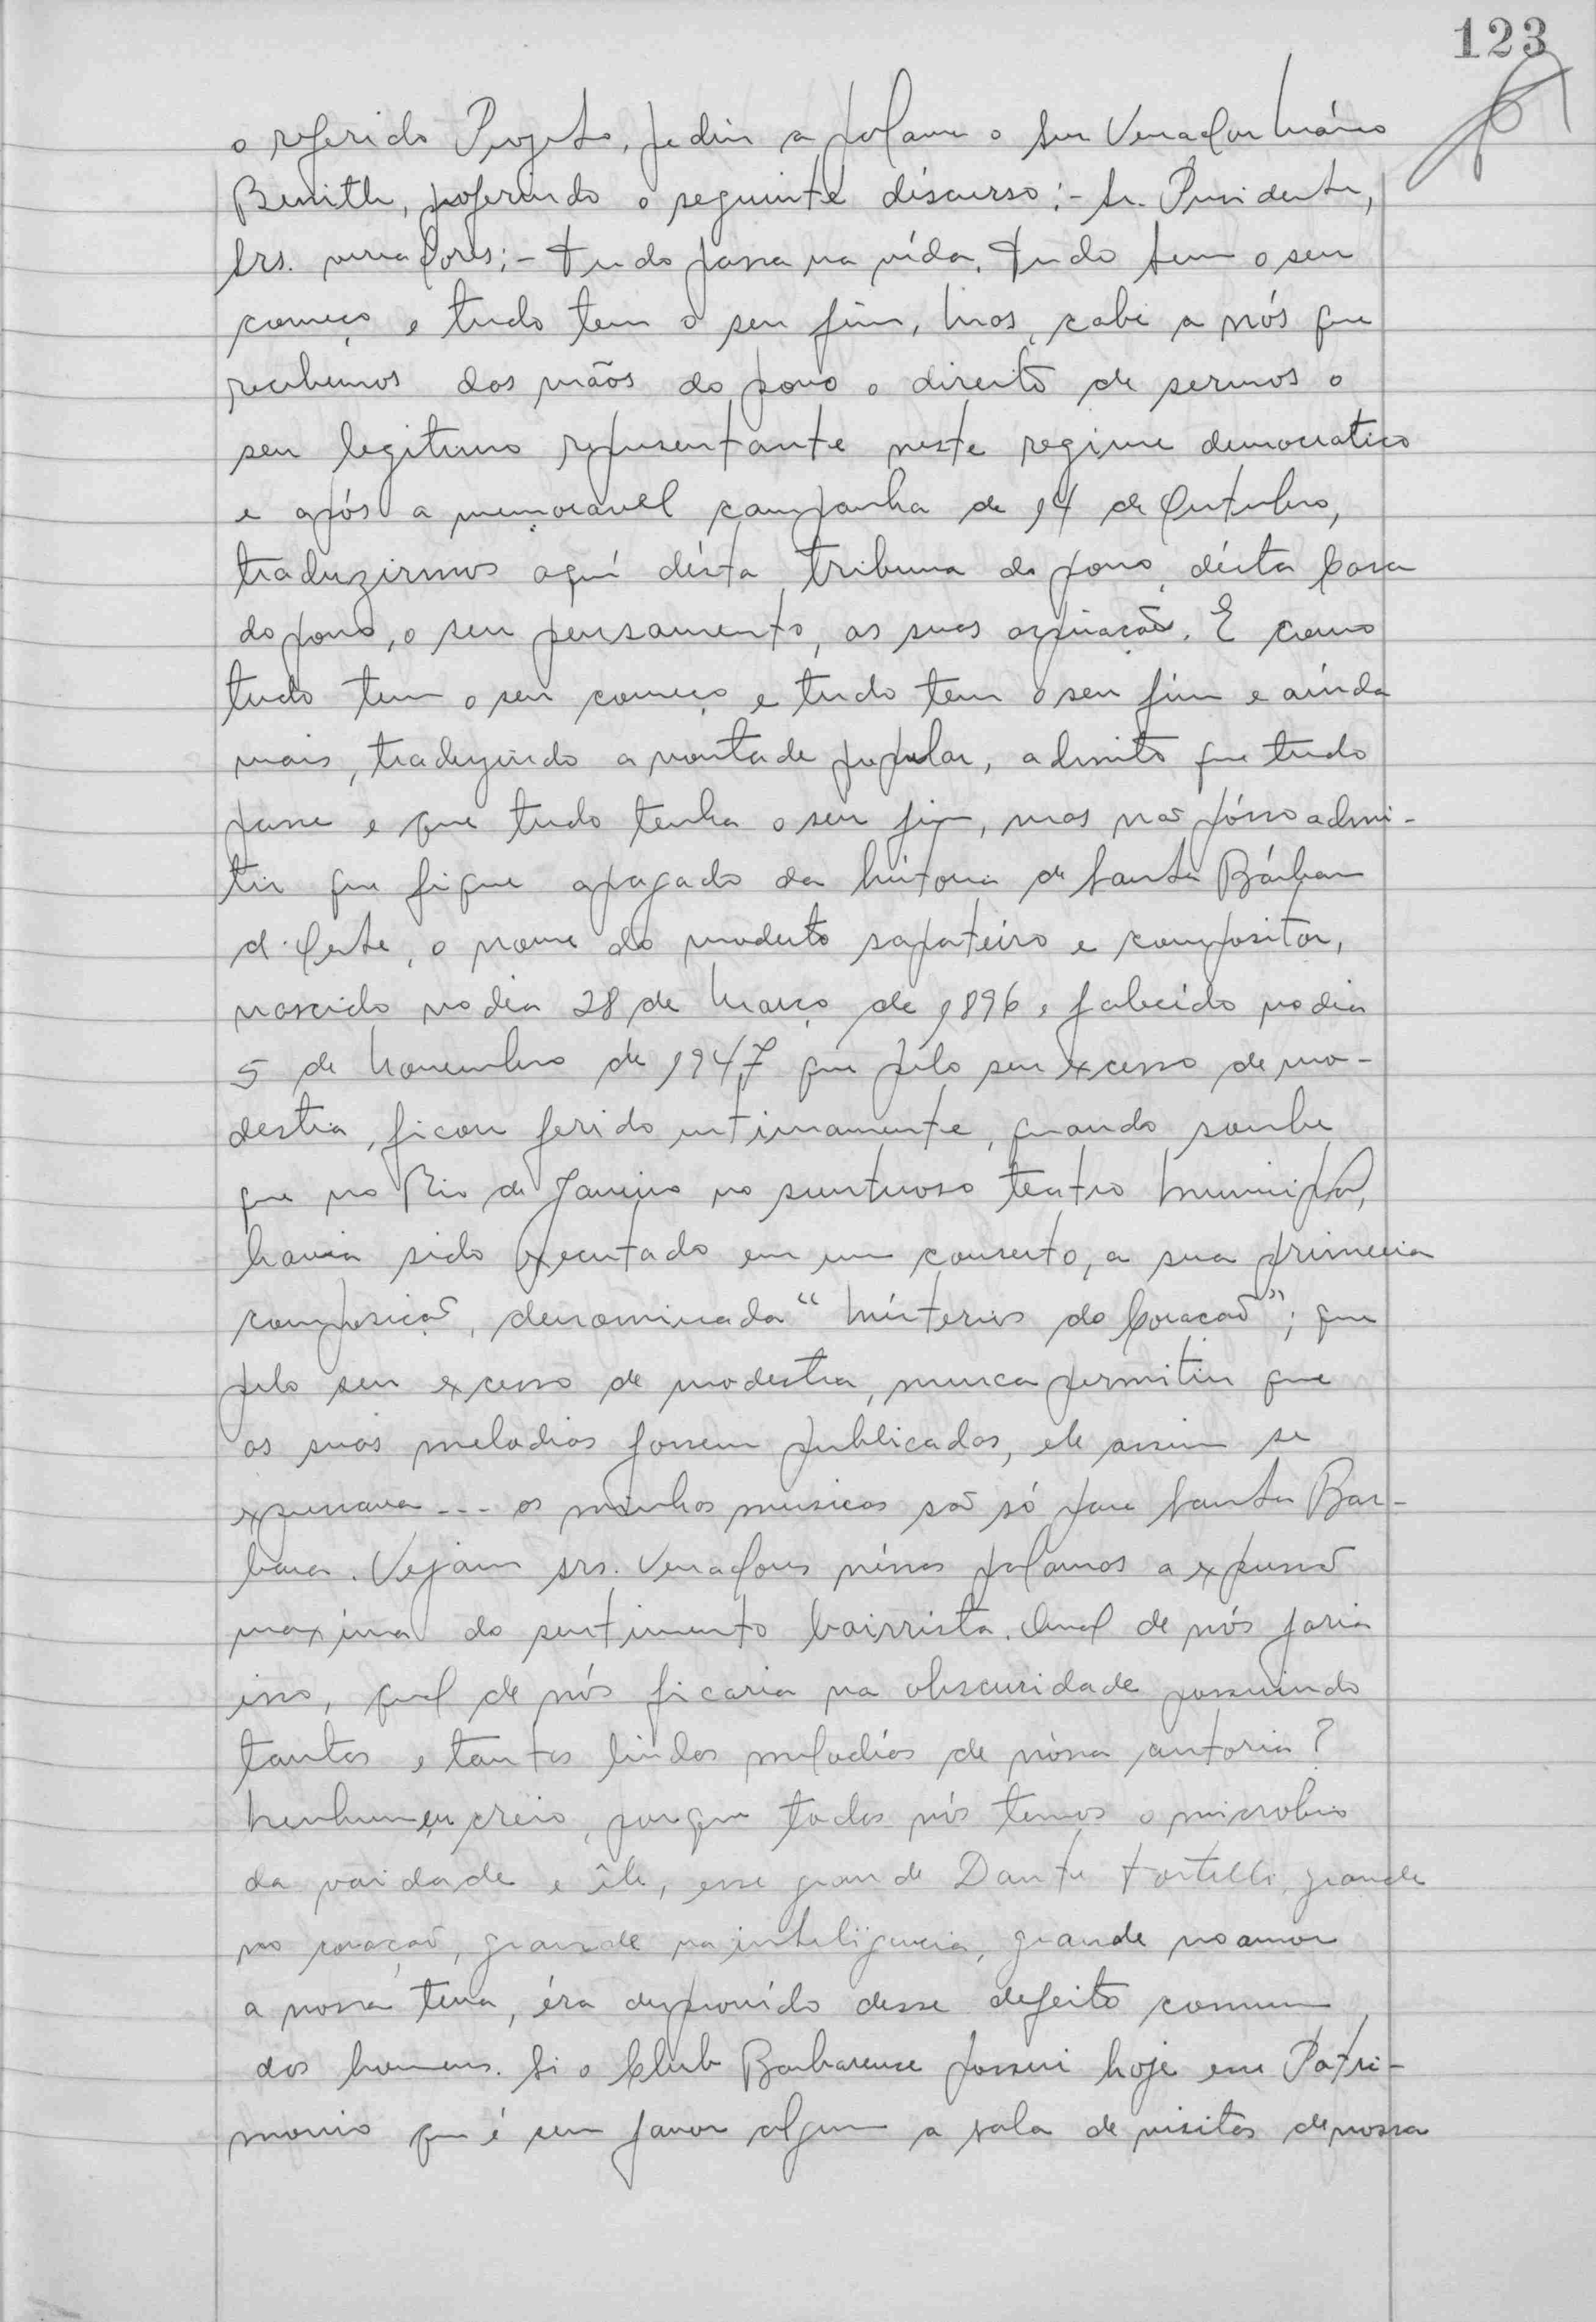 123
o referido Projeto, pediu a palavra o snr Vereador Mário
Benith, proferindo o seguinte discurso:- Sr. Presidente,
Srs. vereadores:- Tudo passa na vida. Tudo tem o seu
começo e tudo tem o seu fim, mas, cabe a nós que
recebemos das mãos do povo o direito de sermos o
seu legitimo representante neste regime democratico
e após a memoravel campanha de 14 de Outubro,
traduzirmos aquí désta tribuna do povo, désta Casa
do povo, o seu pensamento, as suas aspiração. E como
tudo tem o seu começo e tudo tem o seu fim e aínda
mais, traduzindo a vontade popular, admito que tudo
passe e que tudo tenha o seu fim, mas não pósso admi-
tir que fique apagado da historia de Santa Bárbara
d'Oeste, o nome do modesto sapateiro e compositor,
nascido no dia 28 de Março de 1896 e falecido no dia
5 de Novembro de 1947 que pelo seu excesso de mo-
destia, ficou ferido intimamente, quando soube
que no Rio de Janeiro no suntuoso teatro Municipal,
havia sido executado em um conserto, a sua primeira
composição, denominada "Místerios do Coração"; que
pelo seu excesso de modestia, nunca permitiu que
as suas melodias fossem publicadas, ele assim se
expressava --- as minhas musicas são só para Santa Bar-
bara. Vejam srs. Vereadores néssas palavras a expressão
maxima do sentimento bairrista. Qual de nós faria
isso, qual de nós ficaria na obscuridade possuindo
tantas e tantas lindas melodías de nóssa autoria?
Nenhum eu creio, porque todos nós temos o microbio
da vaidade e êle, esse grande Dante Tortelli, grande
no coração, grande na inteligencia, grande no amor
a nossa terra, éra desprovído desse defeito comum
dos homens. Si o Club Barbarense possui hoje em Patri-
monio que é sem favor algum a sala de visitas de nossa